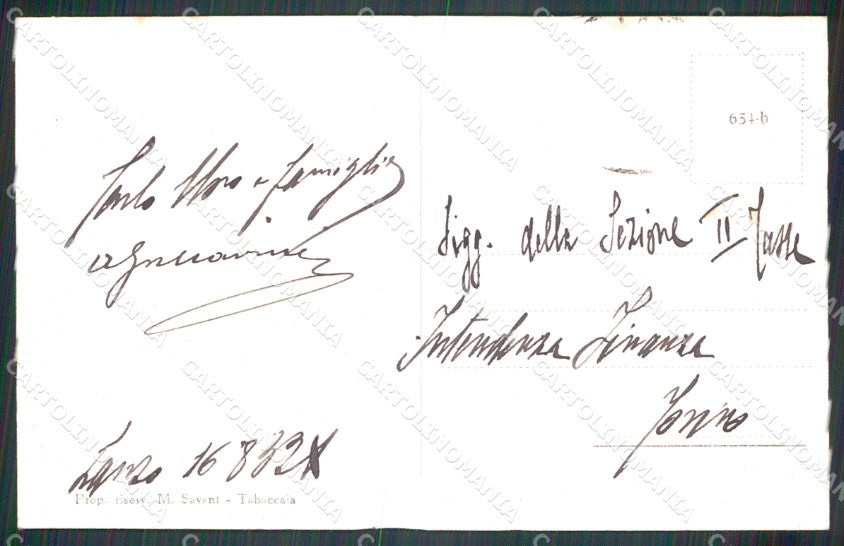 654-b
Carlo Moro e famiglia
Sigg. della Sezione II Tasse
Intendenza Finanza
Torino
Lanzo 16 8 32 X
Prop. riserv. M. Savant - Tabaccaia
CARTOLINOMANIA